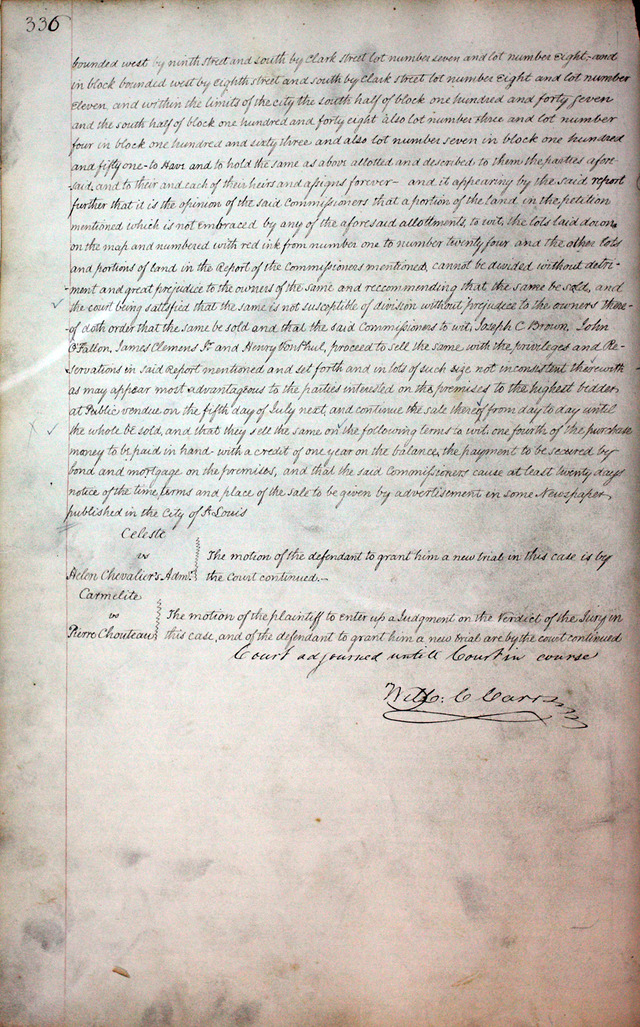 336
bounded west by ninth street and south by Clark street lot number seven and lot number Eight, and
in block bounded west by Eighth street and south by Clark street lot number Eight and lot number
Eleven, and within the limits of the city the south half of block one hundred and forty seven
and the south half of block one hundred and forty eight also lot number three and lot number
four in block one hundred and sixty three and also lot number seven in block one hundred
and fifty one - to Have and to hold the same as above allotted and described to them the parties afore
-said, and to their and each of their heirs and assigns forever - and it appearing by the said report
further that it is the opinion of the said Commissioners that a portion of the land in the petition
mentioned which is not embraced by any of the aforesaid allotments, to wit, the lots laid down
on the map and numbered with red ink from number one to number twenty four and the other lots
and portions of land in the Report of the Commissioners mentioned, cannot be divided without detri-
-ment and great prejudice to the owners of the same and reccommending that the same be sold, and
the court being satisfied that the same is not susceptible of division without prejudice to the owners there-
-of doth order that the same be sold and that the said Commissioners to wit, Joseph C Brown, John
O'Fallon, James Clemens Jr. and Henry Von Phul, proceed to sell the same with the privileges and Re-
-servations in said Report mentioned and set forth and in lots of such size not inconsistent therewith
as may appear most advantageous to the parties interested on the premises to the highest bidder
at Public vendue on the fifth day of July next, and continue the sale thereof from day to day until
the whole be sold, and that they sell the same on the following terms to wit, one fourth of the purchase
money to be paid in hand - with a credit of one year on the balance, the payment to be secured by
bond and mortgage on the premises, and that the said Commissioners cause at least twenty days
notice of the time, terms and place of the sale to be given by advertisement in some Newspaper
published in the City of St Louis
Celeste
vs
Helen Chevalier's Admr.
The motion of the defendant to grant him a new trial in this case is by
the Court continued.-
Carmelite
vs
Pierre Chouteau
The motion of the plaintiff to Enter up a Judgment on the Verdict of the Jury in
this case, and of the defendant to grant him a new trial are by the court continued
Court adjourned untill Court in course
Wm. C Carr